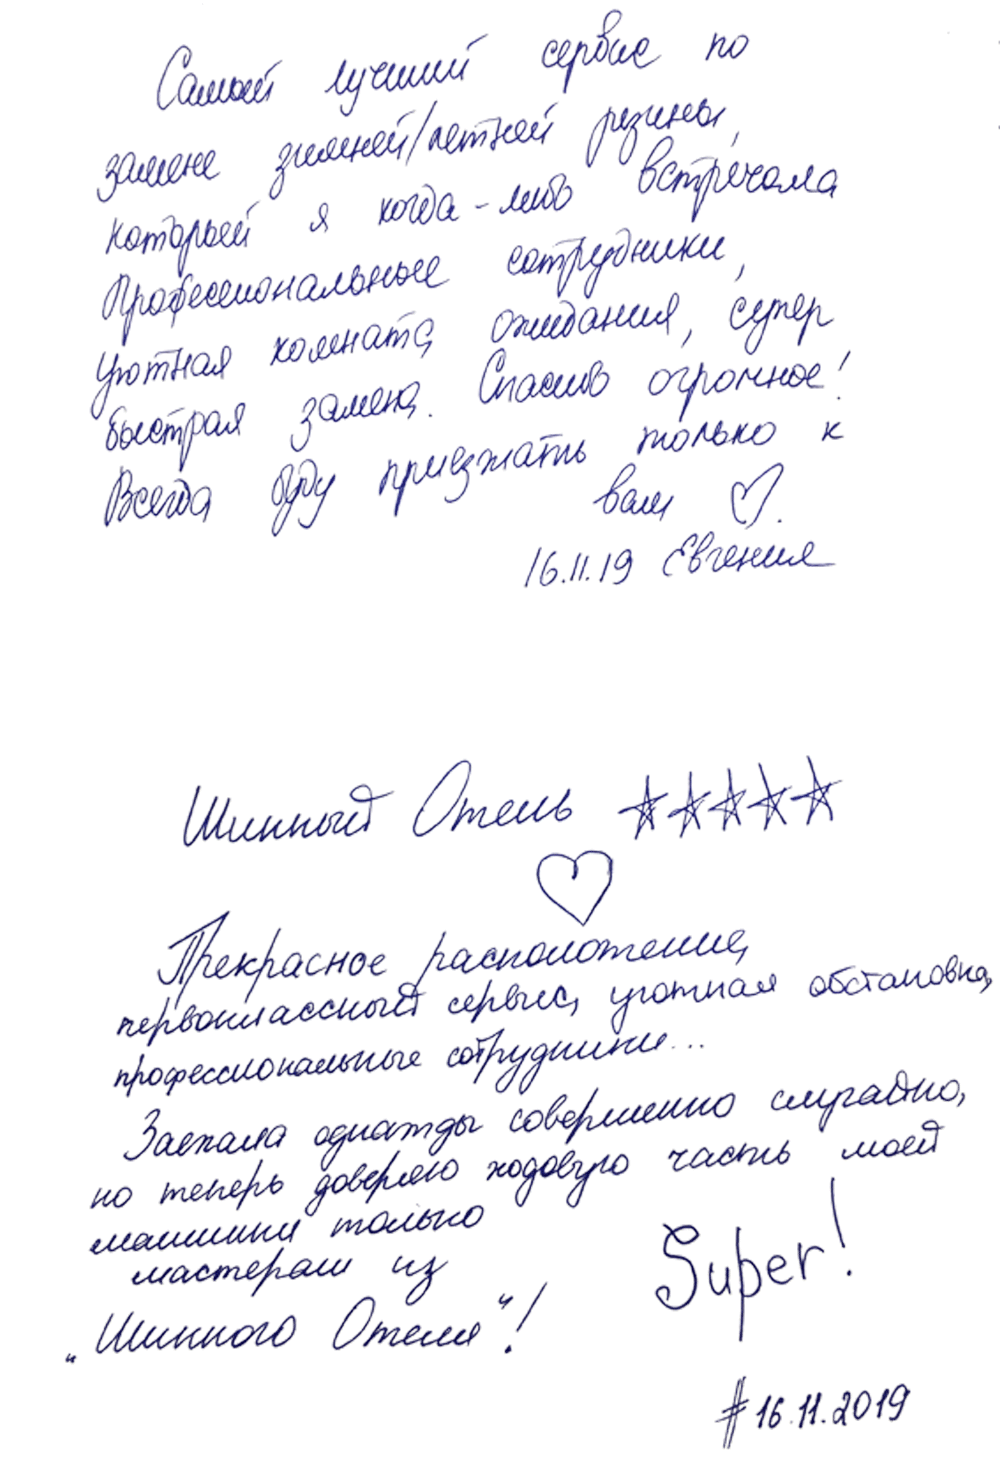 Самый лучший сервис по
замене зимней/летней резины,
которой я когда-либо встречала
Профессиональные сотрудники,
уютная комната ожидания, супер
быстрая замена. Спасибо огромное!
Всегда буду приезжать только к
вам ♡.
16.11.19 Евгения
Шинный Отель ☆☆☆☆☆
♡
Прекрасное расположение,
первоклассный сервис, уютная обстановка,
профессиональные сотрудники...
Заехала однажды совершенно случайно,
но теперь доверяю ходовую часть моей
машины только
мастерам из
„Шинного Отеля"!
Super!
#16.11.2019